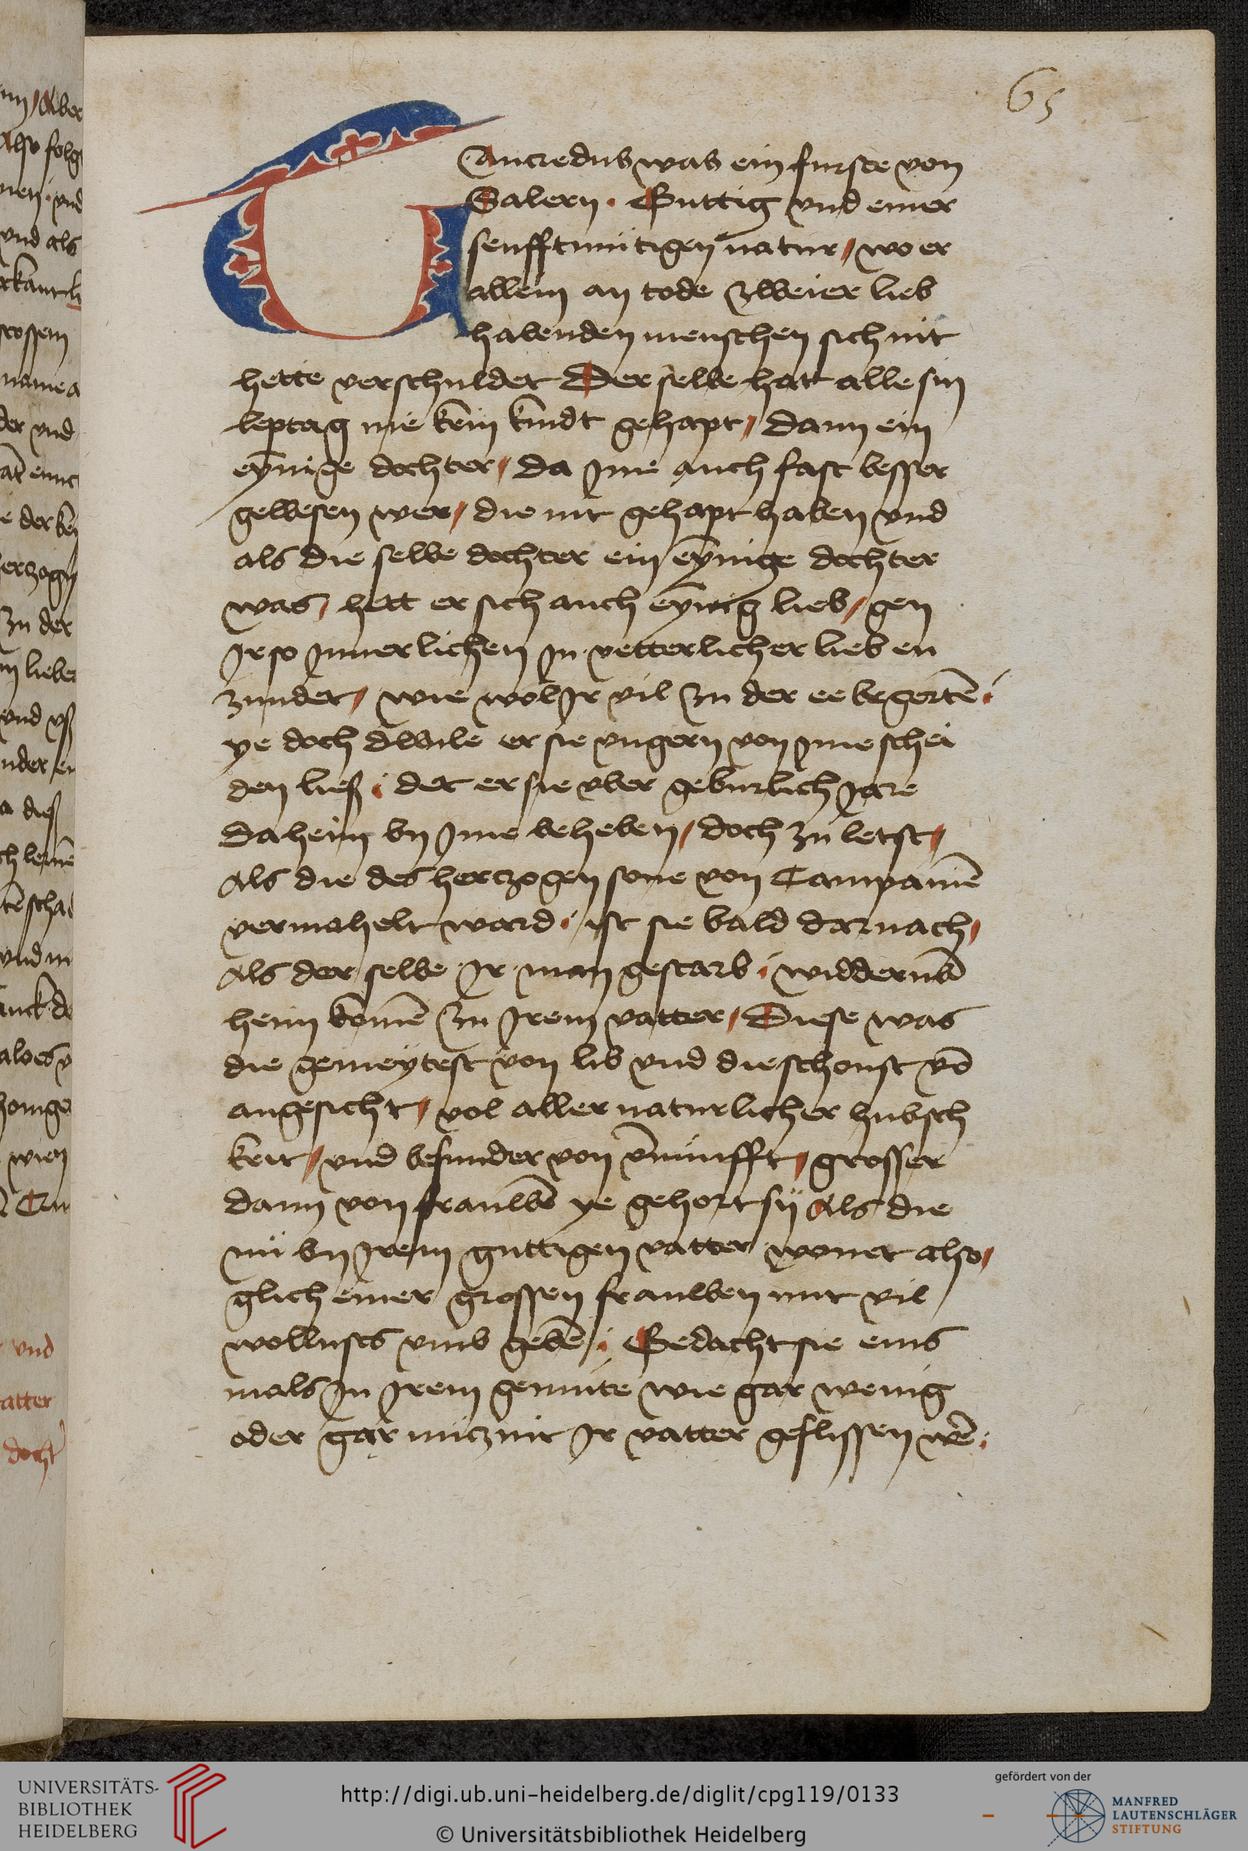 65
Tancredus was ein furste von
Salern · Guttig vnd einer
senfftmütigen natur / wo er
allein an tode zweier lieb
habenden menschen sich nit
hette verschuldet Der selbe hatt alle sin
leptag nie kein kindt gehapt / dann ein
eynige dochter / da Ime auch fast besser
gewesen wer / die nit gehapt haben vnd
als die selbe dochter ein eynige dochter
was / hett er sich auch eynig lieb / gen
Ir so Innerlichen In vetterlicher lieb en
zundet / wie wol Ir vil zu der ee begertē /
ye doch dwile er sie vngern von Ime schei
den ließ / det er sie vber geburlich Jare
daheim by Ime beheben / doch zu letst /
Als die des herzogen sone von Campaniē
vermahelt ward / ist sie bald darnach /
Als der selbe Ir man gestarb / widderūb
heim komē zu Irem vatter / Diese was
die gemeytest von lib vnd die schonst vō
angesicht / vol aller naturlicher hubsch
keit / vnd besunder von v̄nunfft / grosser
dann von frauwē ye gehort sy Als die
nü by Irem guttigen vatter wonet also /
glich einer grossen frauwen mit vil
wollusts vmb gebē / Gedacht sie eins
mals In Irem gemüte wie gar wenig
oder gar nücznit Ir vatter geflissen wē /
vnd
atter
docht
UNIVERSITÄTS-
BIBLIOTHEK
HEIDELBERG
http://digi.ub.uni-heidelberg.de/diglit/cpg119/0133
© Universitätsbibliothek Heidelberg
gefördert von der
MANFRED
LAUTENSCHLÄGER
STIFTUNG